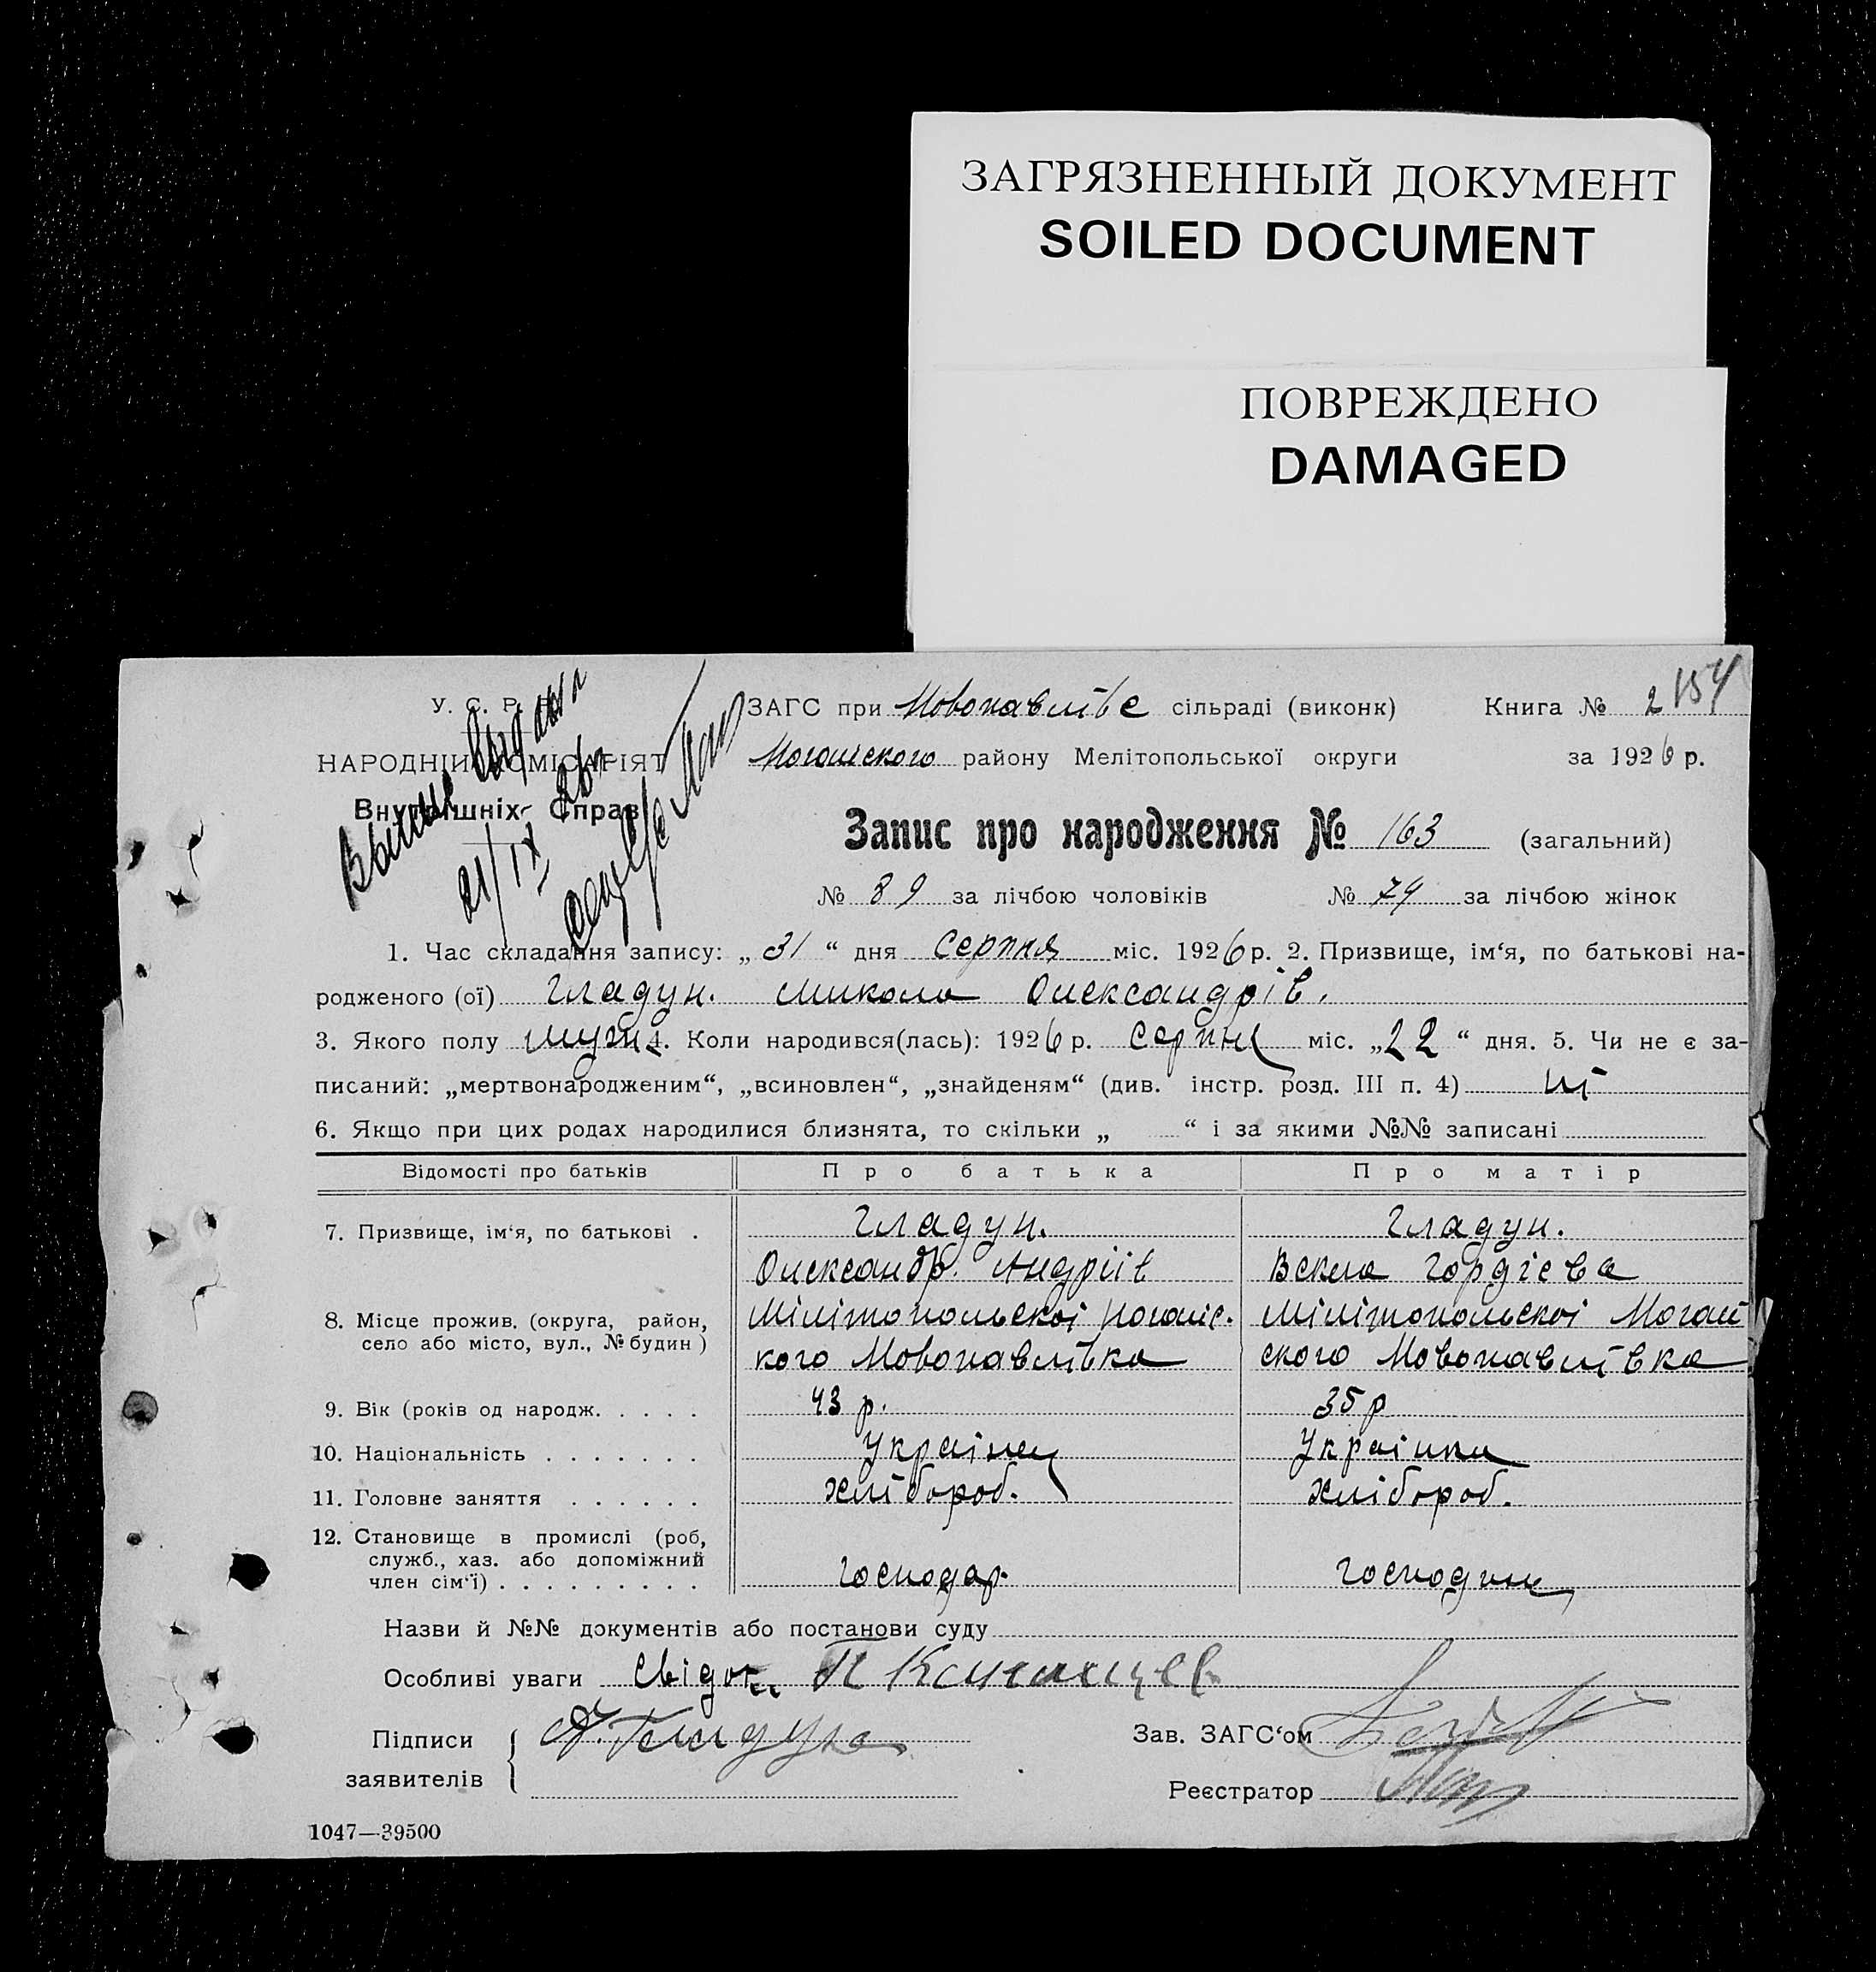 ЗАГРЯЗНЕННЫЙ ДОКУМЕНТ
SOILED DOCUMENT
ПОВРЕЖДЕНО
DAMAGED
У. С. Р. Р.
НАРОДНІЙ КОМІСАРІЯТ
Внутрішніх Справ
21/IX 26г
ЗАГС при Новопавлівс сільраді (виконк) Книга № 2 154
Ногайского району Мелітопольської округи за 1926 р.
Запис про народження № 163 (загальний)
№ 89 за лічбою чоловіків № 74 за лічбою жінок
1. Час складання запису: „ 31 “ дня Серпня міс. 1926 р. 2. Призвище, ім‘я, по батькові на-
родженого (ої) Гладун. Микола Олександрів.
3. Якого полу мужч 4. Коли народився(лась): 1926 р. Серпня міс. „22“ дня. 5. Чи не є за-
писаний: „мертвонародженим“, „всиновлен“, „знайденям“ (див. інстр. розд. III п. 4) ні
6. Якщо при цих родах народилися близнята, то скільки „ “ і за якими №№ записані
Відомості про батьків Про батька Про матір
7. Призвище, ім‘я, по батькові . Гладун. Гладун.
Олександр. Андріїв Векла Гордієва
8. Місце прожив. (округа, район, Мілітопольскої Ногайс- Мілітопольскої Ногай
село або місто, вул., № будин ) кого Новопавлівка ского Новопавлівка
9. Вік (років од народж. . . . . 43 р. 35 р
10. Національність . . . . . . . Українец Українка
11. Головне заняття . . . . . . хлібороб. хлібороб.
12. Становище в промислі (роб,
служб., хаз. або допоміжний
член сім‘ї) . . . . . . . . . господар. господиня
Назви й №№ документів або постанови суду
Особливі уваги Свідок П
Підписи А. Гладун Зав. ЗАГС‘ом
заявителів Реєстратор
1047—39500